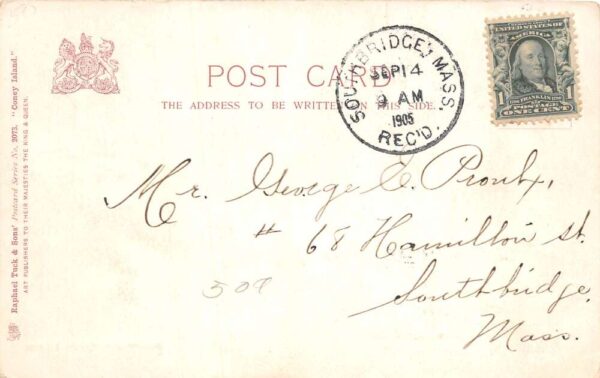 POST CARD
THE ADDRESS TO BE WRITTEN ON THIS SIDE.
SOUTHBRIDGE, MASS.
SEP 14
9 AM
1905
REC'D.
UNITED STATES OF
AMERICA
1 1
FRANKLIN
POSTAGE
ONE CENT
Mr. George E. Proulx,
# 68 Hamilton st.
Southbridge,
Mass.
509
Raphael Tuck & Sons' Postcard Series No. 2073. "Coney Island."
ART PUBLISHERS TO THEIR MAJESTIES THE KING & QUEEN.